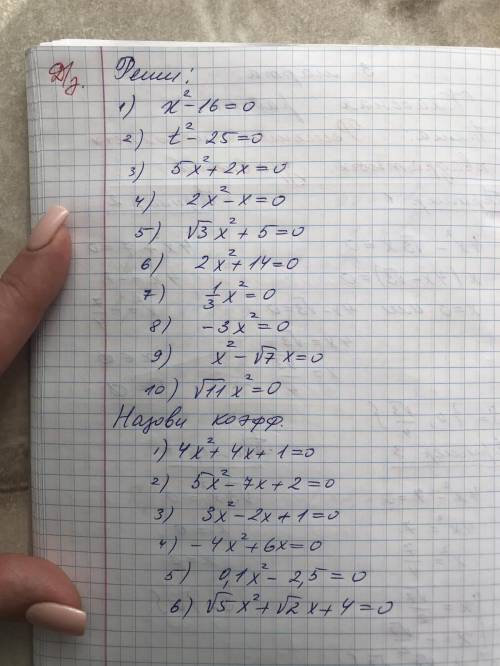 Д/з. Реши:
1) x² - 16 = 0
2) t² - 25 = 0
3) 5x² + 2x = 0
4) 2x² - x = 0
5) √3 x² + 5 = 0
6) 2x² + 14 = 0
7) 1/3 x² = 0
8) -3x² = 0
9) x² - √7 x = 0
10) √11 x² = 0
Назови коэфф.
1) 4x² + 4x + 1 = 0
2) 5x² - 7x + 2 = 0
3) 3x² - 2x + 1 = 0
4) -4x² + 6x = 0
5) 0,1x² - 2,5 = 0
6) √5 x² + √2 x + 4 = 0